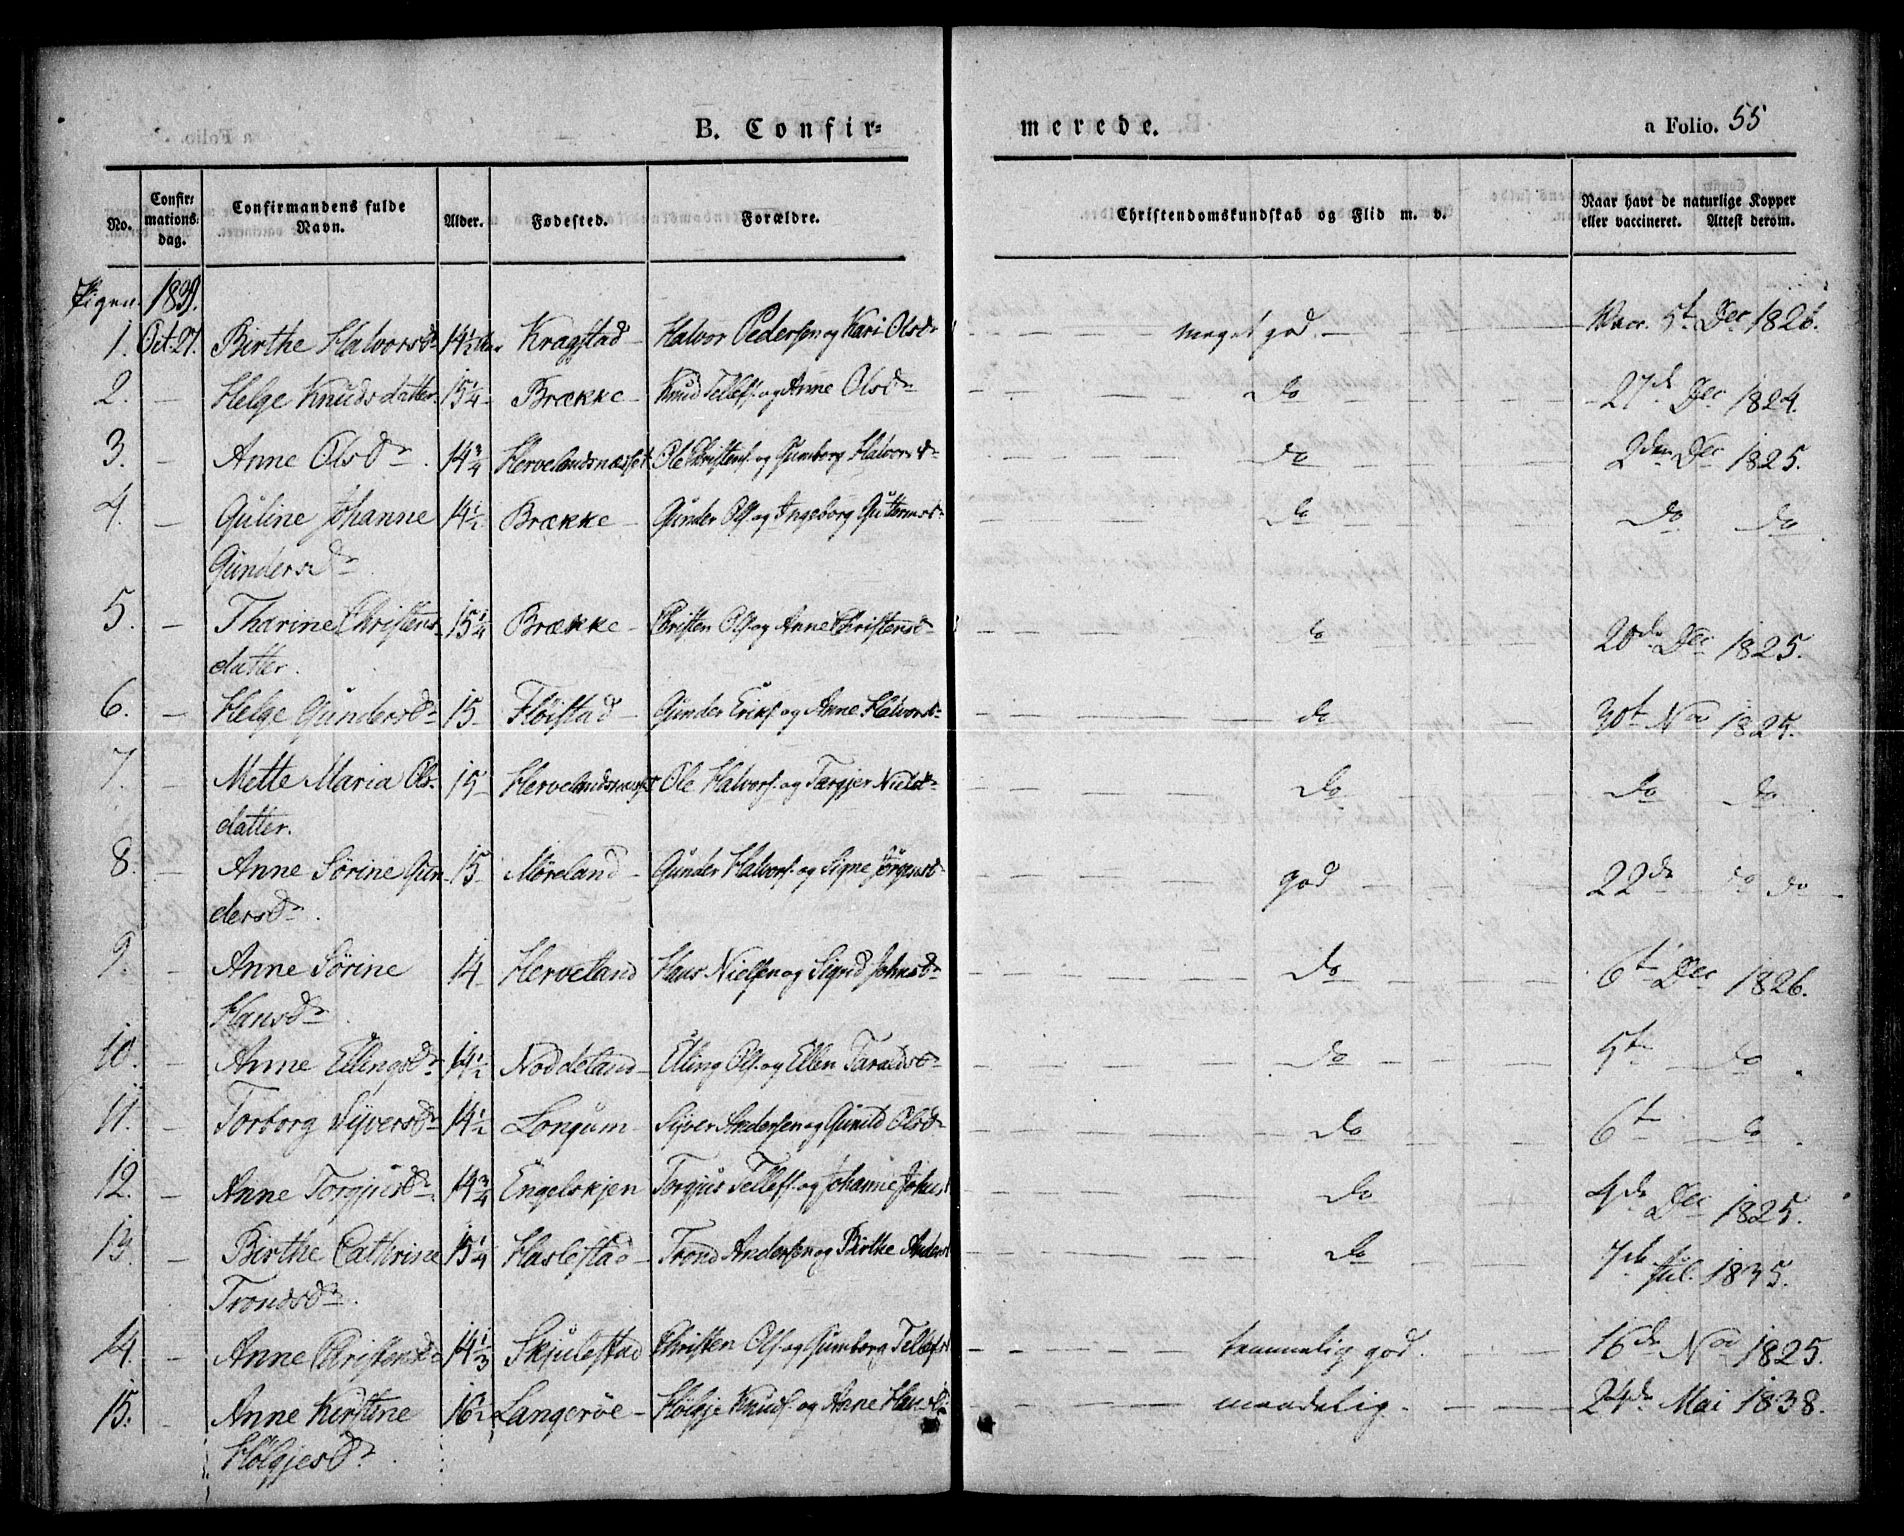 B. Confir=
merede.
a Folio. 55
No. Confir: mations: dag. Confirmandens fulde Navn. Alder. Fødested. Forældre. Christendomskundskab og Flid m. v. Naar havt de naturlige Kopper eller vaccineret. Attest derom.
Pigen 1839.
1. Oct. 27. Birthe Halvorsdr 14½ Aar Kragstad Halvor Pedersen og Kari Olsdr — — — meget god. — Vacc. 5t Dec 1826.
2. — Helge Knudsdatter 15¼ Brække Knud Tellefs. og Anne Olsdr — — — do — — — 27de Dec 1824.
3. — Anne Olsdr 14¾ Hervelandsnæsset Ole Christens. og Gumborg Halvorsdr — — — do — — — 2den Dec 1825.
4. — Guline Johanne 14½ Brække Gunder Ols. og Ingeborg Guttormsd — — — do — — — do do
Gundersdr
5. — Tharine Christens 15¼ Brække Christen Ols. og Anne Christensd — — — do — — — 20de Dec 1825.
datter.
6. — Helge Gundersdr 15 Fløistad Gunder Eriks. og Anne Halvorsd — — — do — — — 30t Nov 1825.
7. — Mette Maria Ols 15 Hervelandsnæsset Ole Halvors. og Targjer Nielsd — — — do — — — do do
datter.
8. — Anne Sørine Gun 15 Møreland Gunder Halvors. og Signe Jørgensd — — — god — — — 22de do do
dersdr.
9. — Anne Sørine 14 Herveland Hans Nielsen og Sigrid Johnsdr — — — do — — — 6t Dec 1826.
Hansdr.
10. — Anne Ellingsdr 14½ Noddeland Elling Ols. og Ellen Taraldsdr — — — do — — — 5te do
11. — Torborg Syversdr 14½ Longum Syver Andersen og Gunild Olsdr — — — do — — — 6t do
12. — Anne Torgjusdr 14¾ Engelskjen Torgjus Tellefs. og Johanne Johnsd — — — do — — — 4de Dec 1825.
13. — Birthe Cathrine 15¼ Haslestad Trond Andersen og Birthe Andersd — — — do — — — 7de Jul. 1835.
Trondsdr.
14. — Anne Christensd 14⅓ Skjulestad Christen Ols. og Gumborg Tellefsd — — — temmelig god. 16de Nov 1825.
15. — Anne Kirstine 16½ Langerøe Hølgje Knuds. og Anne Hansdr — — — maadelig. — — 24de Mai 1838.
Hølgjesdr.